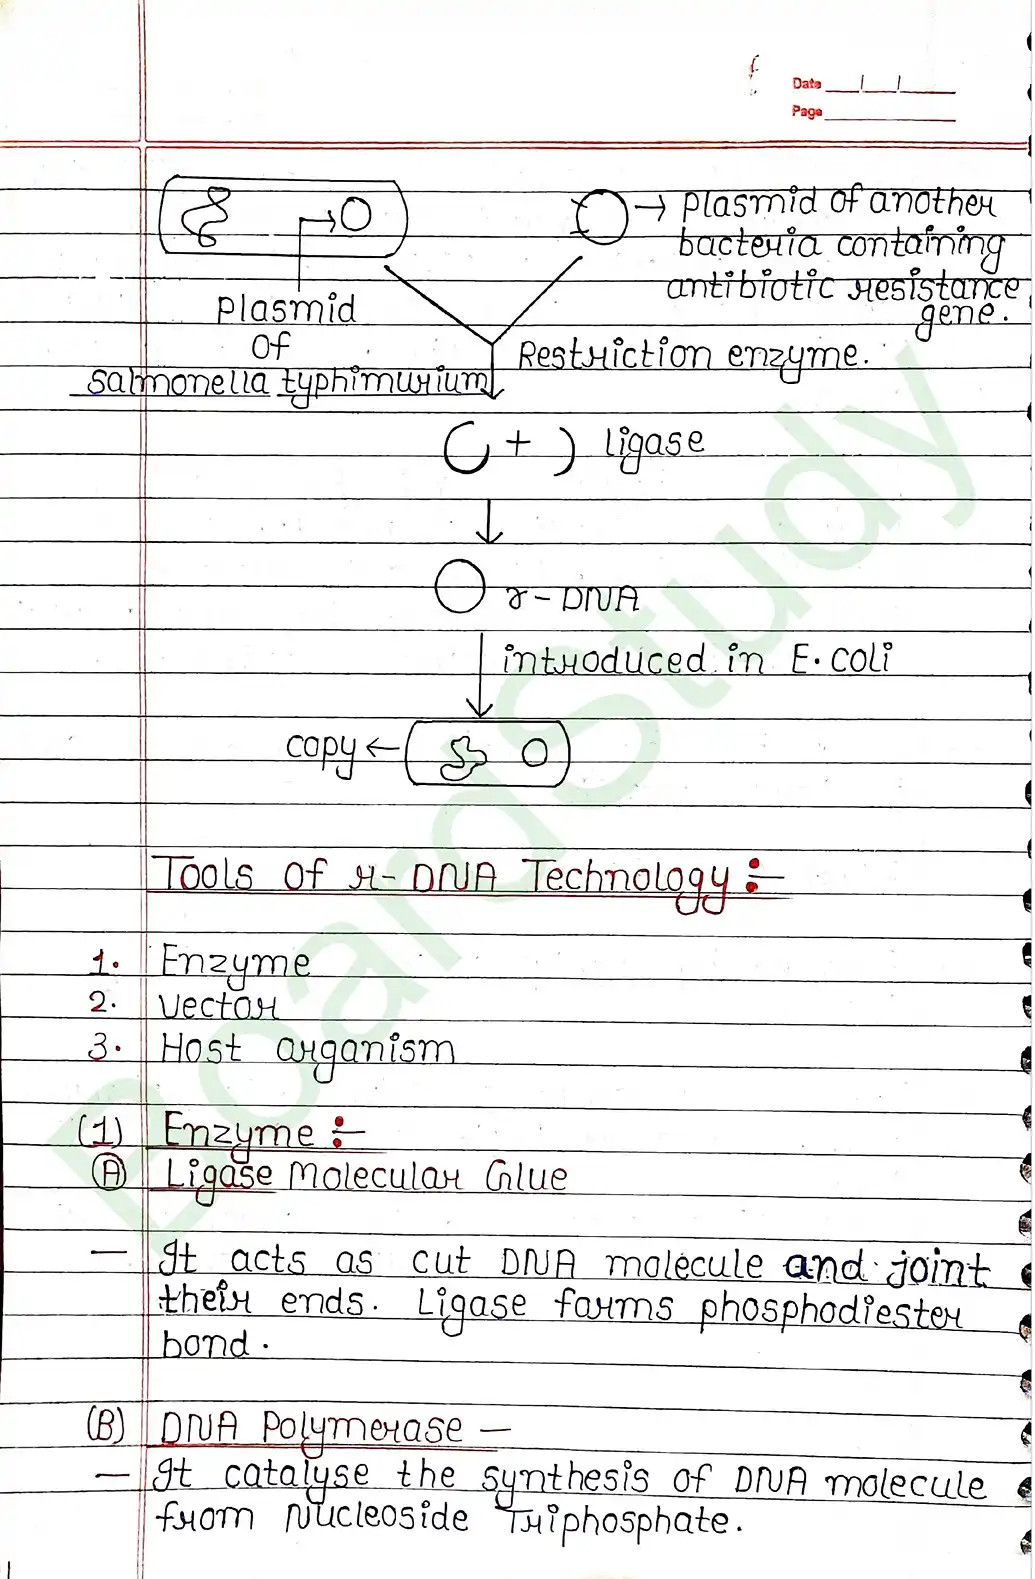 Date
Page
Plasmid of another
bacteria containing
antibiotic resistance
gene.
Plasmid
of
Salmonella typhimurium
Restriction enzyme.
+ ligase
r-DNA
introduced in E. coli
copy
Tools of r-DNA Technology :-
1. Enzyme
2. Vector
3. Host organism
(1) Enzyme :-
(A) Ligase Molecular Glue
— It acts as cut DNA molecule and joint
their ends. Ligase forms phosphodiester
bond.
(B) DNA Polymerase —
— It catalyse the synthesis of DNA molecule
from Nucleoside Triphosphate.
BoardStudy